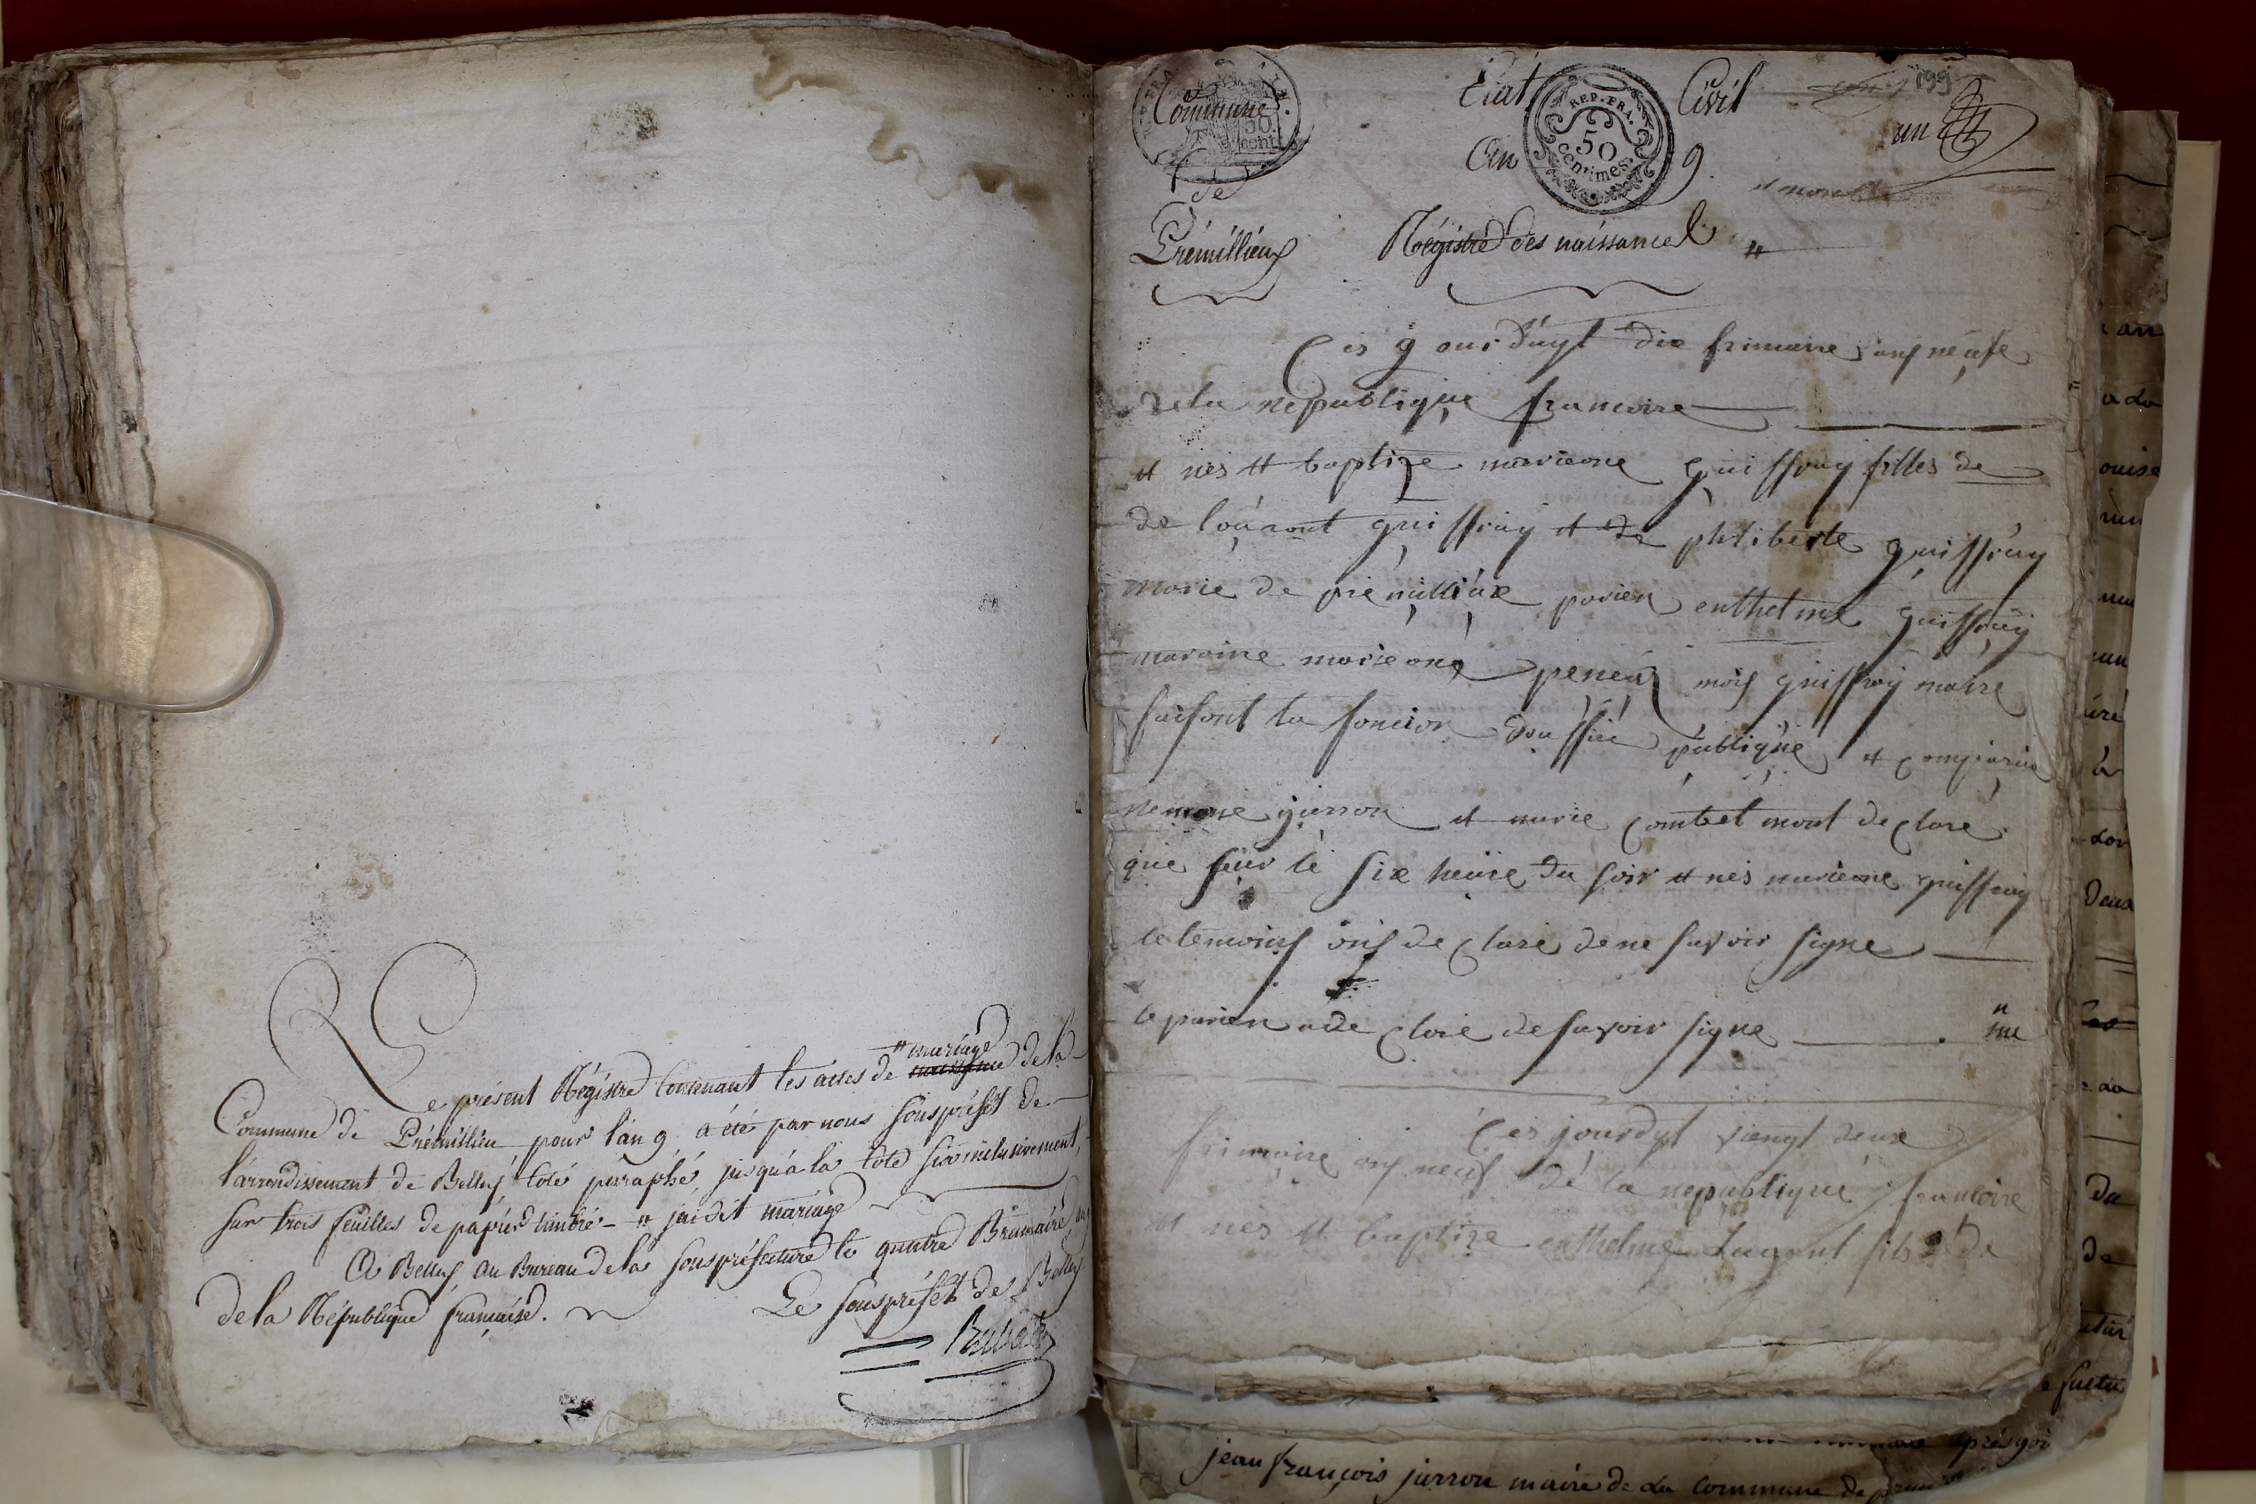 Le présent Régistre Contenant les actes de " mariage naissance de la
Commune de Prémillieu, pour l'an 9 a été par nous souspréfet de
l'arrondissement de Belley, coté paraphé jusqu'a la cote six inclusivement,
sur trois feuilles de papier timbré - " j'ai dit mariage
A Belley au Bureau de la souspréfecture le quatre Brumaire
de la République française.
Le souspréfet de Belley
Commune
de
Prémillieux
Etat Civil
An 9.
REP. FRA.
50
centimes.
199
un
Régistre des naissances "
Ces jourduyt dix frimaire ans neufe
de la republique francoire
et nes et baptize marieone guiffray filles de
de lourant guiffray et de philiberte guiffray
marie de premilliux parien enthelme guiffray
maraine marieone peney mois guiffray maire
faisont la foncion douffiie publique et comparu
jurron et marie combet mont de clare
que sur le six heure du soir et nes marieone guiffray
le temoins ons de clare de ne savoir signe
le parien a de clare de savoir signe
Ces jourdyt viengt deux
frimaire ans neufs de la republique francoire
et nes et baptize enthelme fils de
jean françois jurron maire de la commune de